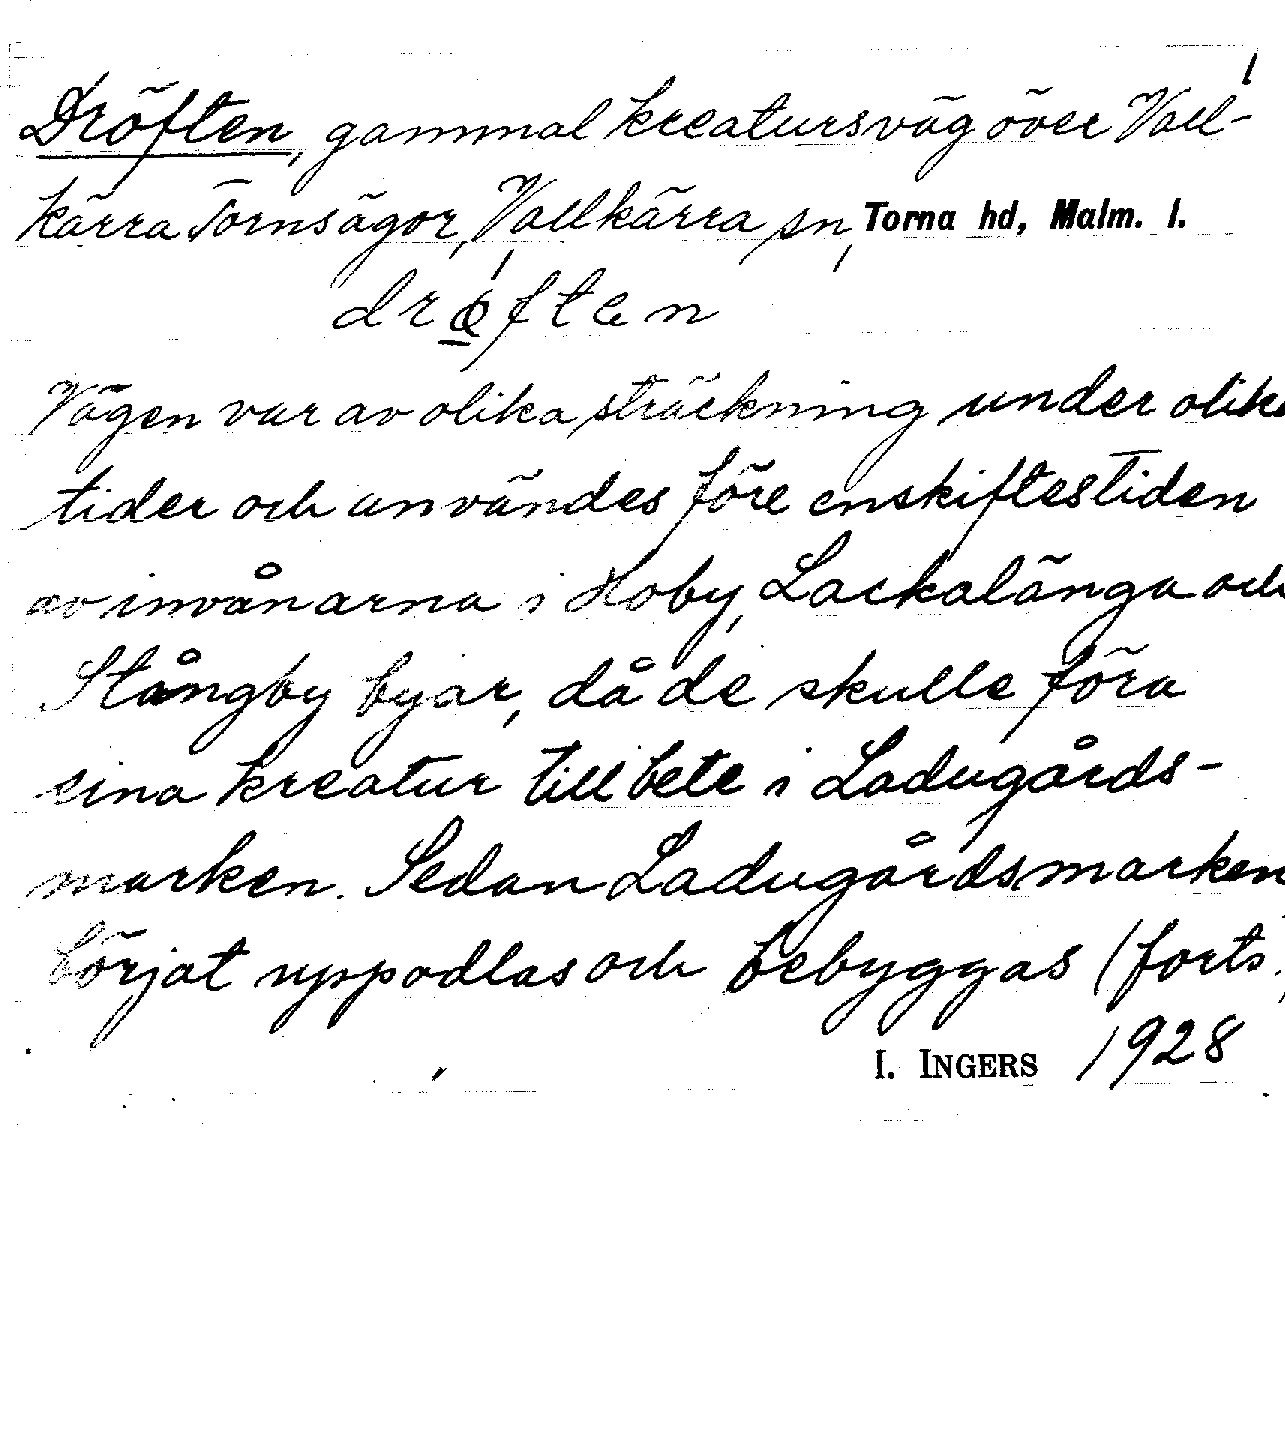 1
Dröften, gammal kreatursväg över Vall-
kärra Tornsägor, Vallkärra sn, Torna hd, Malm. l.
drøftən
Vägen var av olika sträckning under olika
tider och användes före enskiftestiden
av invånarna i Hoby, Lackalänga och
Stångby byar, då de skulle föra
sina kreatur till bete i Ladugårds-
marken. Sedan Ladugårdsmarken
börjat uppodlas och bebyggas (forts.)
I. INGERS 1928